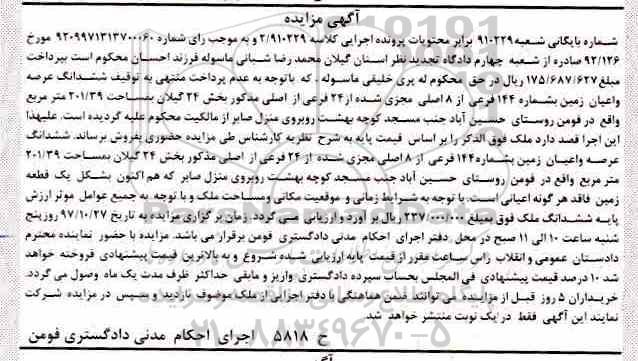 آگهی مزایده
شماره بایگانی شعبه ۹۱۰۲۲۹ برابر محتویات پرونده اجرایی کلاسه ۲/۹۱۰۲۲۹ و به موجب رای شماره ۹۲۰۹۹۷۱۳۱۳۷۰۰۰۶۰ مورخ
۹۲/۱۲۶ صادره از شعبه چهارم دادگاه تجدید نظر استان گیلان محمد رضا شبانی ماسوله فرزند احسان محکوم است بپرداخت
مبلغ ۱۷۵/۶۸۷/۶۲۷ ریال در حق محکوم له پری خلیقی ماسوله . که باتوجه به عدم پرداخت منتهی به توقیف ششدانگ عرصه
واعیان زمین بشماره ۱۴۴ فرعی از ۸ اصلی مجزی شده از۲۴ فرعی از اصلی مذکور بخش ۲۴ گیلان بمساحت ۲۰۱/۳۹ متر مربع
واقع در فومن روستای حسین آباد جنب مسجد کوچه بهشت روبروی منزل صابر از مالکیت محکوم علیه گردیده است. علیهذا
این اجرا قصد دارد ملک فوق الذکر را بر اساس قیمت پایه به شرح نظریه کارشناس طی مزایده حضوری بفروش برساند. ششدانگ
عرصه واعیان زمین بشماره۱۴۴ فرعی از ۸ اصلی مجزی شده از ۲۴ فرعی از اصلی مذکور بخش ۲۴ گیلان بمساحت ۲۰۱/۳۹
متر مربع واقع در فومن روستای حسین آباد جنب مسجد کوچه بهشت روبروی منزل صابر که هم اکنون بشکل یک قطعه
زمین فاقد هر گونه اعیانی است. با توجه به شرایط زمانی و موقعیت مکانی ومساحت ملک و با توجه به جمیع عوامل موثر ارزش
پایه ششدانگ ملک فوق بمبلغ ۲۳۷/۰۰۰/۰۰۰ ریال بر آورد و ارزیابی می گردد. زمان بر گزاری مزایده به تاریخ ۹۷/۱۰/۲۷ روز پنج
شنبه ساعت ۱۰ الی ۱۱ صبح در محل دفتر اجرای احکام مدنی دادگستری فومن برقرار می باشد. مزایده با حضور نماینده محترم
دادستان عمومی و انقلاب راس ساعت مقرر از قیمت پایه ارزیابی شده شروع و به بالاترین قیمت پیشنهادی فروخته خواهد
شد ۱۰ درصد قیمت پیشنهادی فی المجلس بحساب سپرده دادگستری واریز و مابقی حداکثر ظرف مدت یک ماه وصول می گردد.
خریداران ۵ روز قبل از مزایده می توانند ضمن هماهنگی با دفتر اجرا از ملک موصوف بازدید و سپس در مزایده شرکت
نمایند این آگهی فقط در یک نوبت منتشر خواهد شد
خ ۵۸۱۸ اجرای احکام مدنی دادگستری فومن
۰۲۱-۸۸۳۴۹۶۷۰-۵